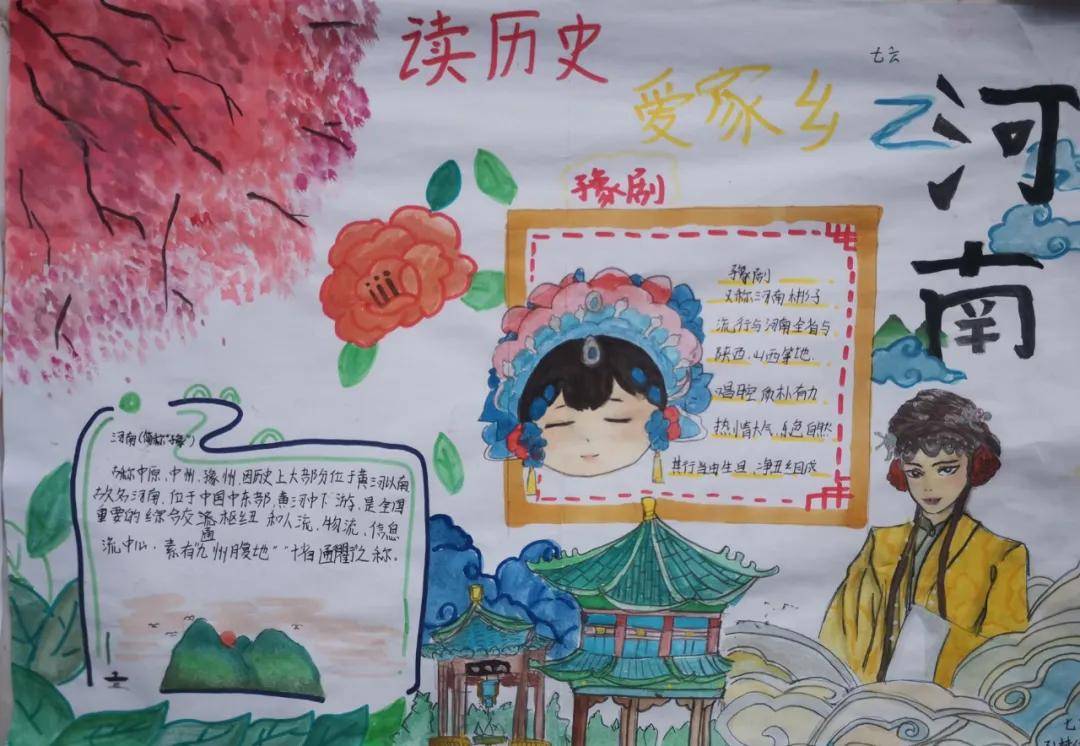 读历史
爱家乡
七六
河
南
豫剧
豫剧
又称河南梆子
流行与河南全省与
陕西、山西等地、
唱腔质朴有力
热情大气、本色自然
其行当由生旦、净丑组成
河南(简称"豫")
称中原、中州、豫州、因历史上大部分位于黄河以南
故名河南、位于中国中东部、黄河中下游、是全国
重要的综合交通枢纽和人流、物流、信息
流中心、素有"九州腹地""十省通衢"之称。
七